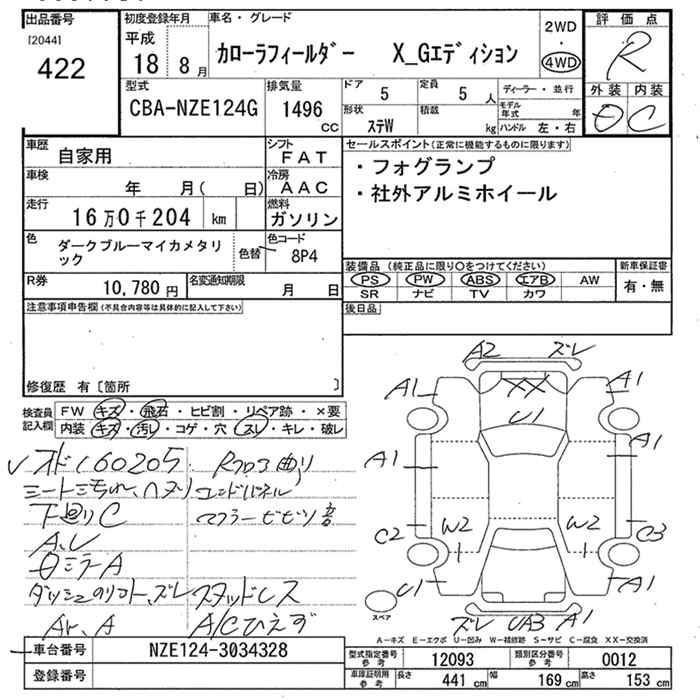 出品番号
[2044]
422
初度登録年月
平成
18 8月
車名・グレード
カローラフィールダー X_Gエディション
2WD
・
4WD
評価点
R
外装 内装
D C
型式
CBA-NZE124G
排気量
1496
CC
ドア 5
定員 5 人
形状 ステW
積載 kg
ディーラー・並行
モデル年式 年
ハンドル 左・右
車歴
自家用
シフト
FAT
車検
年 月( 日)
冷房
AAC
走行
16万0千204 km
燃料
ガソリン
色
ダークブルーマイカメタリック
色替
色コード
8P4
R券
10,780 円
名変通知期限
月 日
セールスポイント(正常に機能するものに限ります)
・フォグランプ
・社外アルミホイール
装備品(純正品に限り〇をつけてください)
PS PW ABS エアB AW
SR ナビ TV カワ
新車保証書
有・無
注意事項申告欄(不具合内容等は具体的に記入して下さい)
後日品
修復歴 有〔箇所 〕
検査員記入欄
FW キズ・飛石・ヒビ割・リペア跡・×要
内装 キズ・汚レ・コゲ・穴・スレ・キレ・破レ
オド160205
Rフロア曲り
エンドパネル
下廻りC
マフラービビリ音
A、U
ミラーA
スタッドレス
A/Cひえず
A2 ズレ
A1 A1
XX
U1
A1 A1
C2 W2 W2 C3
U1 A1
スペア
ズレ UA3 A1
A-キズ E-エクボ U-凹み W-補修跡 S-サビ C-腐食 XX-交換済
車台番号
NZE124-3034328
登録番号
型式指定番号 参考
12093
類別区分番号 参考
0012
車庫証明用 参考
長さ 441 cm
幅 169 cm
高さ 153 cm